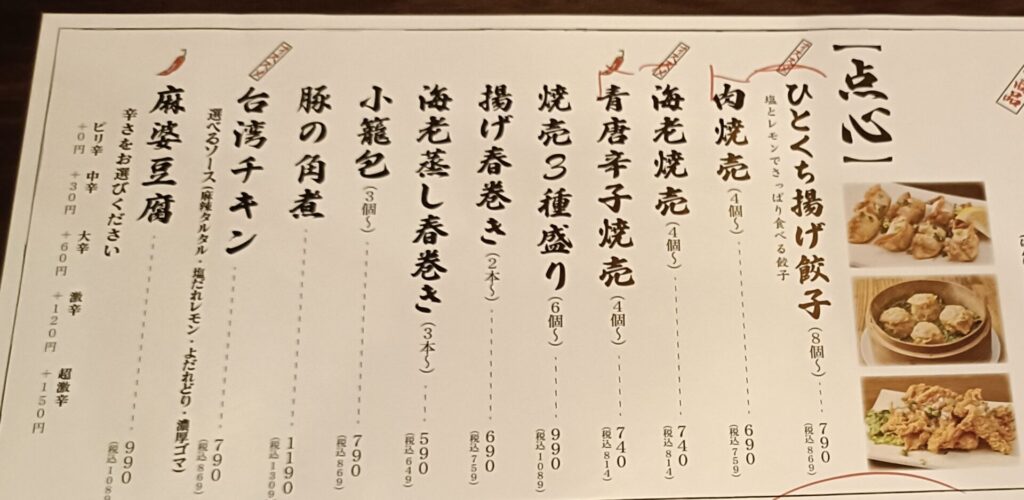 【点心】
ひとくち揚げ餃子(8個〜) 790
(税込869)
塩とレモンでさっぱり食べる餃子
肉焼売(4個〜) 690
(税込759)
海老焼売(4個〜) 740
(税込814)
青唐辛子焼売(4個〜) 740
(税込814)
焼売3種盛り(6個〜) 990
(税込1089)
揚げ春巻き(2本〜) 690
(税込759)
海老蒸し春巻き(3本〜) 590
(税込649)
小籠包(3個〜) 790
(税込869)
豚の角煮 1190
(税込1309)
台湾チキン 790
(税込869)
選べるソース(麻辣タルタル・塩だれレモン・よだれどり・濃厚ゴマ)
麻婆豆腐 990
(税込1089
辛さをお選びください
ピリ辛 +0円
中辛 +30円
大辛 +60円
激辛 +120円
超激辛 +150円